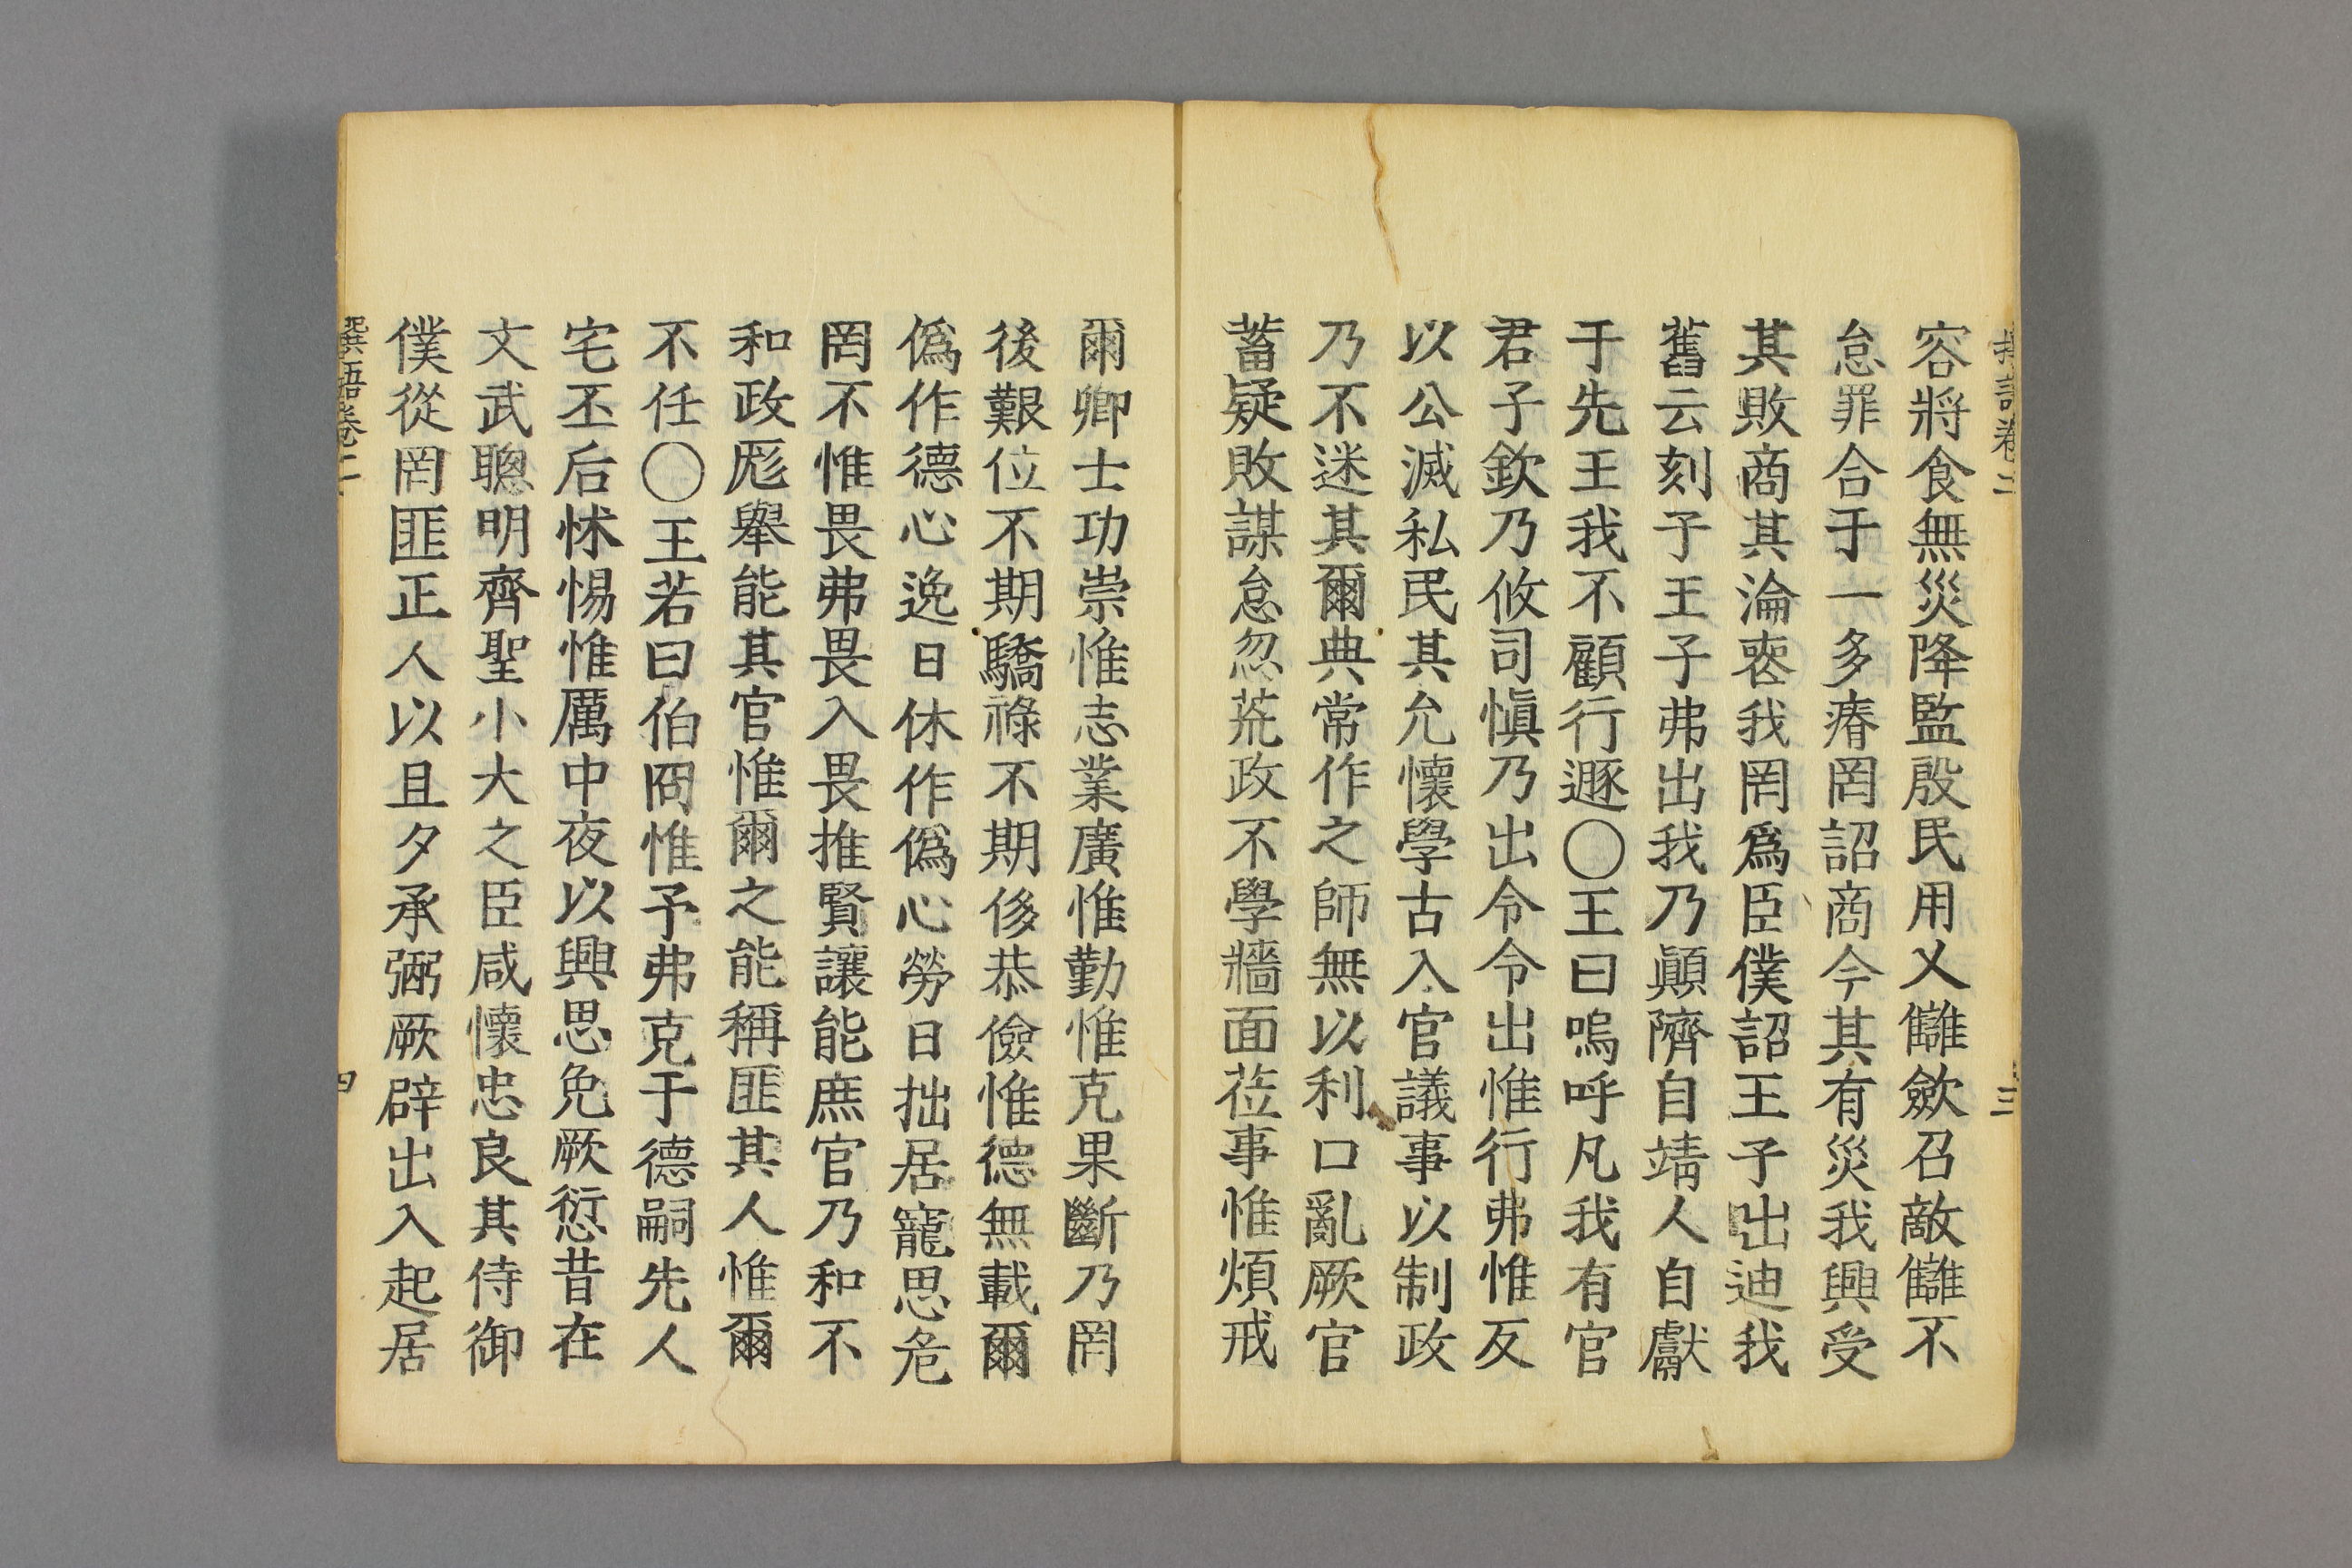 容將食無災降監殷民用乂讎斂召敵讎不
怠罪合于一多瘠罔詔商今其有災我興受
其敗商其淪喪我罔爲臣僕詔王子出迪我
舊云刻子王子弗出我乃顚隮自靖人自獻
于先王我不顧行遯〇王曰嗚呼凡我有官
君子欽乃攸司愼乃出令令出惟行弗惟反
以公滅私民其允懷學古入官議事以制政
乃不迷其爾典常作之師無以利口亂厥官
蓄疑敗謀怠忽荒政不學牆面莅事惟煩戒
爾卿士功崇惟志業廣惟勤惟克果斷乃罔
後艱位不期驕祿不期侈恭儉惟德無載爾
僞作德心逸日休作僞心勞日拙居寵思危
罔不惟畏弗畏入畏推賢讓能庶官乃和不
和政厖舉能其官惟爾之能稱匪其人惟爾
不任〇王若曰伯冏惟予弗克于德嗣先人
宅丕后怵惕惟厲中夜以興思免厥愆昔在
文武聰明齊聖小大之臣咸懷忠良其侍御
僕從罔匪正人以旦夕承弼厥辟出入起居
卷二
四